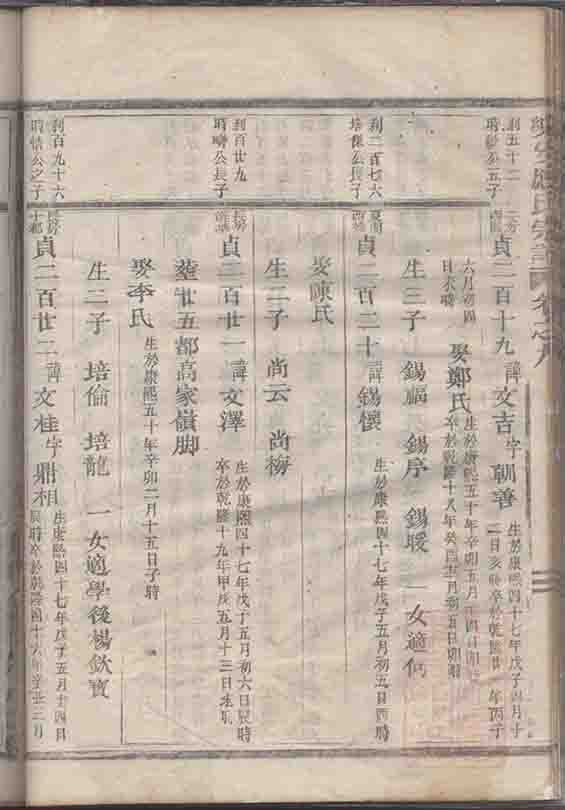 利五十二
貞二百十九 諱文吉字朝善
生於康熙四十七年戊子四月十
二日亥時卒於乾隆廿 年丙子
六月初四
日未時
娶鄭氏
生於康熙五十年辛卯五月
卒於乾隆十八年癸酉 月初五日卯時
生三子 錫福 錫序 錫暖 一女適何
利二百七六
培傑公長子
貞二百二十 諱錫懷 生於康熙四十七年戊子五月初五日酉時
娶陳氏
生二子 尚云 尚梅
利百廿九
公長子
貞二百廿一 諱文澤
生於康熙四十七年戊子五月初六日辰時
卒於乾隆十九年甲戌五月十三日未時
葬廿五都高家嶺脚
娶李氏 生於康熙五十年辛卯二月十五日子時
生二子 培倫 培龍 一女適學後楊欽寶
利百九十六
時 公之子
貞二百廿二 諱文桂字鼎相
生康熙四十七年戊子五月十四日
辰時卒於乾隆四十六年辛丑三月